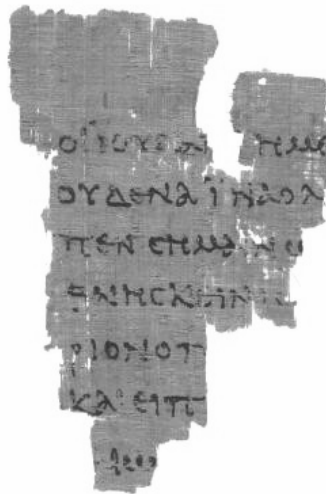 ΟΙ ΪΟΥΔΑΙ ΗΜΕ
ΟΥΔΕΝΑ ΪΝΑ Ο Λ
ΠΕΝ CΗΜΑΙΝΩ
ΘΝΗCΚΕΙΝ
ΡΙΟΝ Ο Π
ΚΑΙ ΕΙΠ
ΑΙΩ